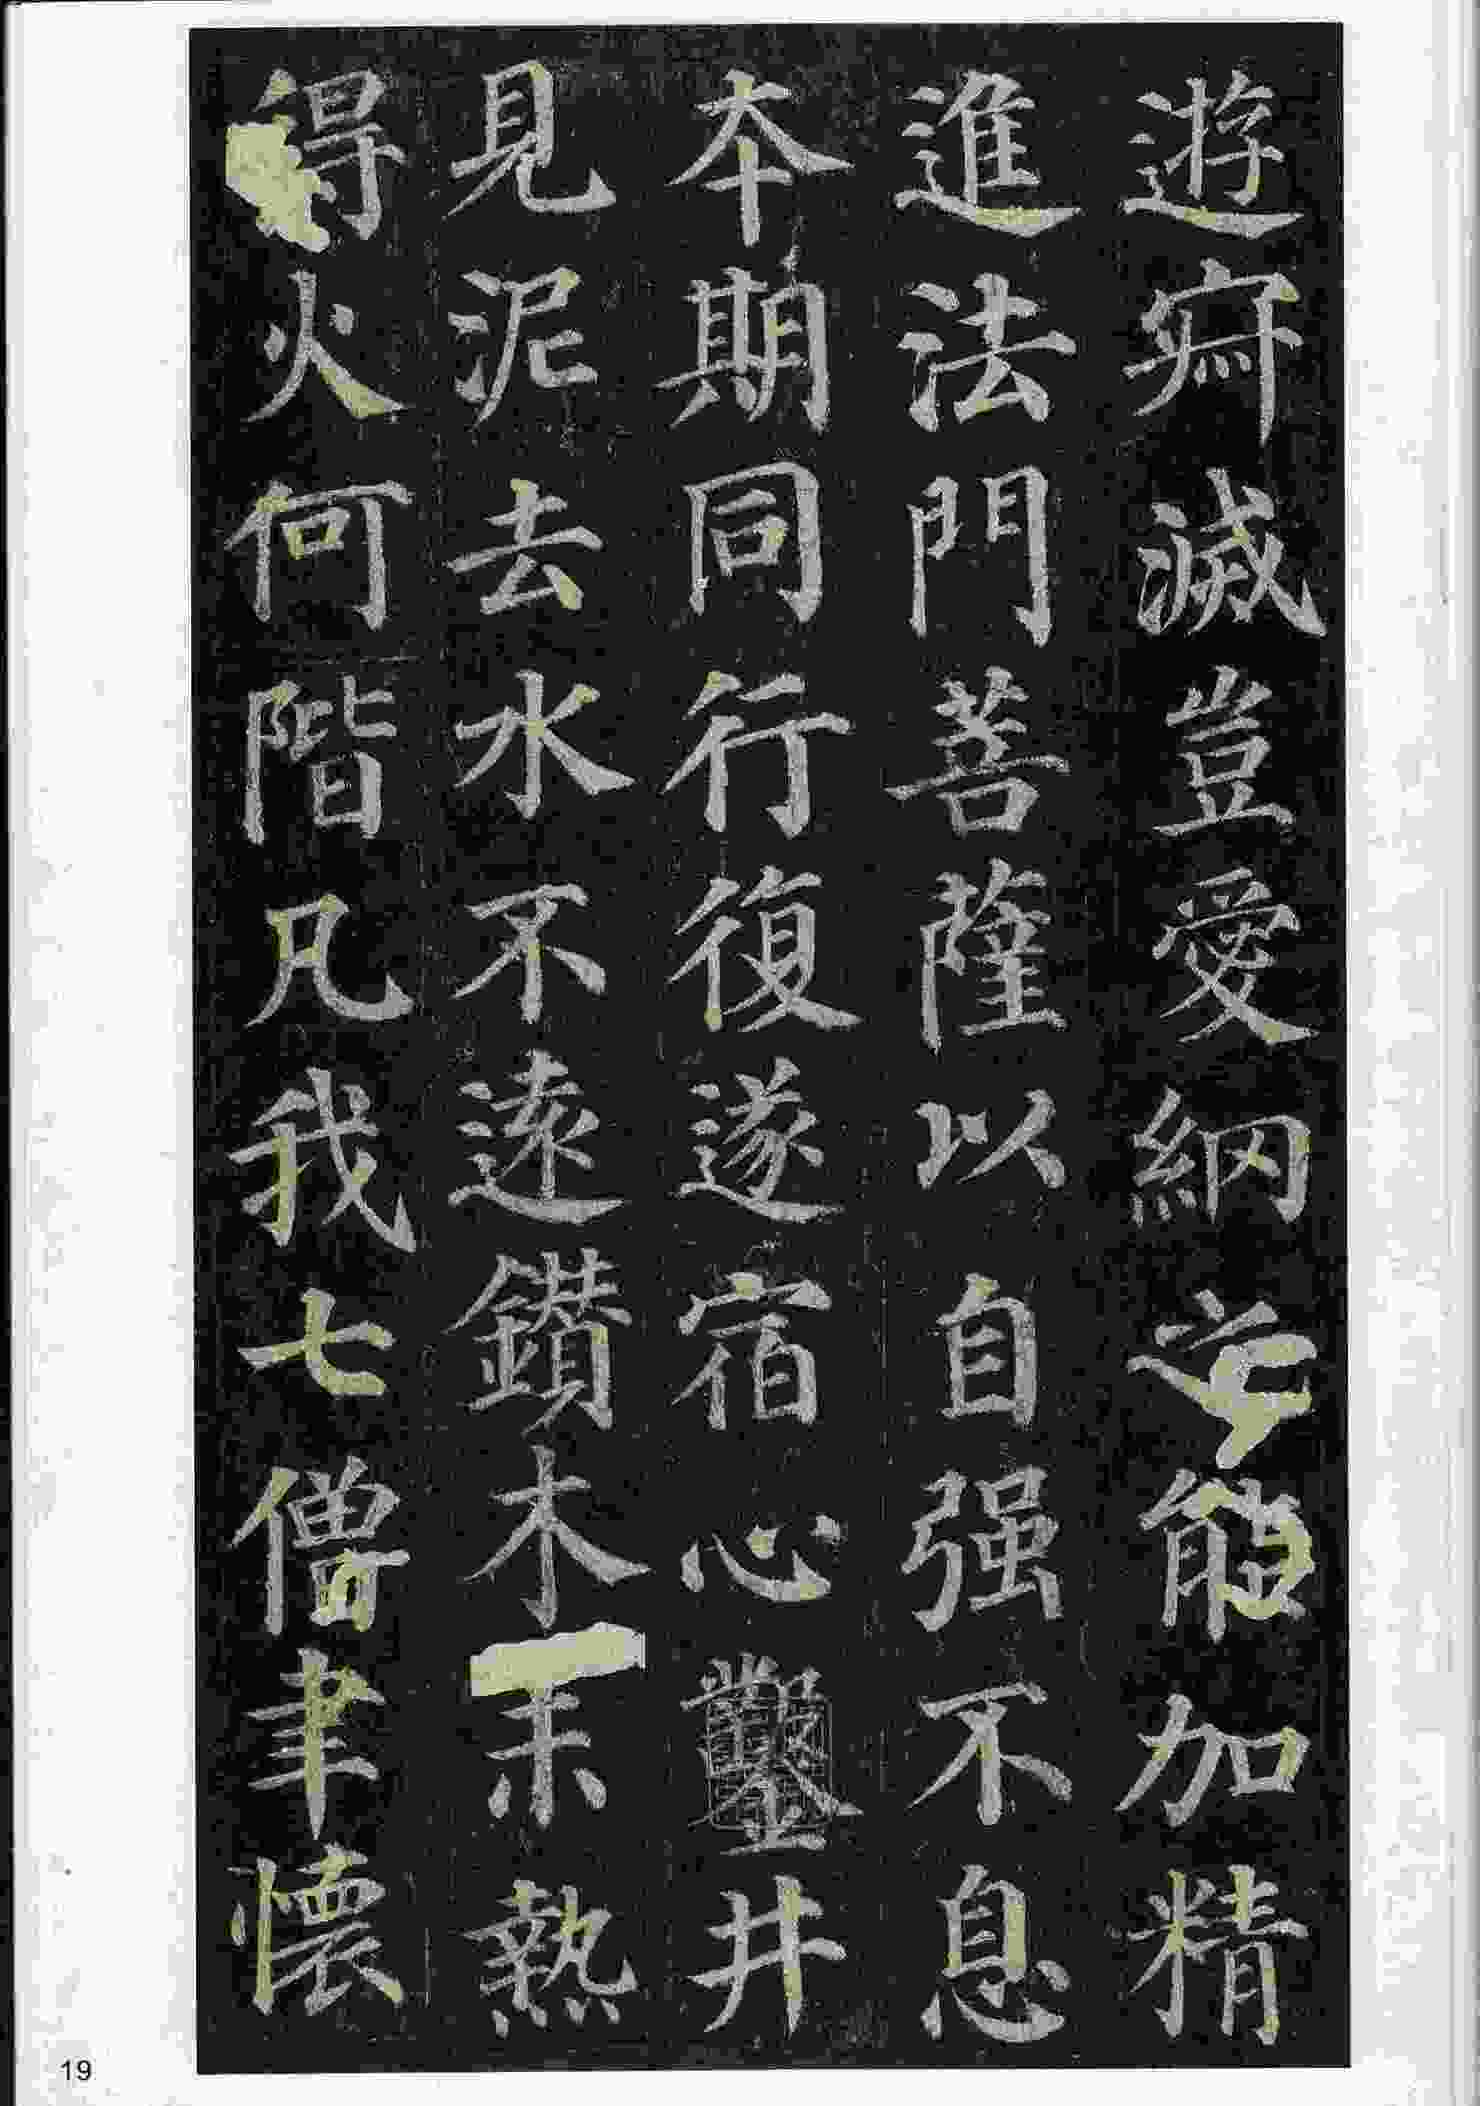 遊寂滅豈愛網之能加精
進法門菩薩以自强不息
本期同行復遂宿心鑿井
見泥去水不遠鑽木未熱
得火何階凡我七僧聿懷
19